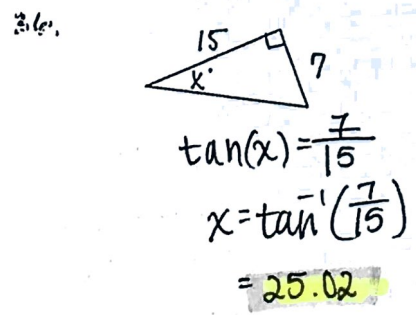 36.
15
7
x°
tan(x) = 7/15
x = tan⁻¹(7/15)
= 25.02